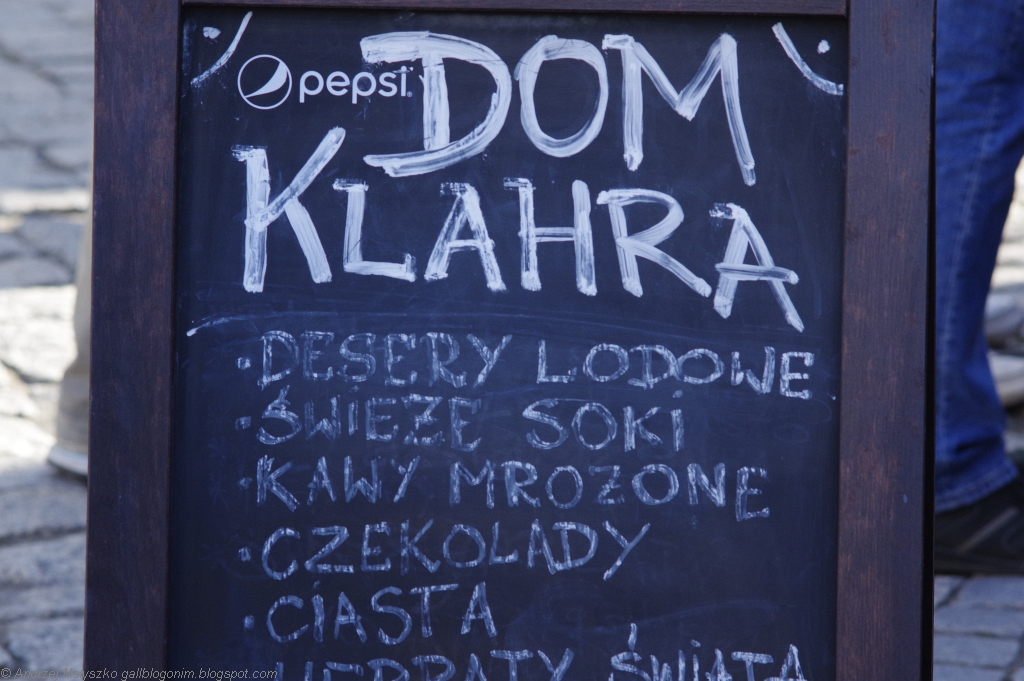 pepsi DOM
KLAHRA
· DESERY LODOWE
· ŚWIEŻE SOKI
· KAWY MROŻONE
· CZEKOLADY
· CIASTA
HERBATY ŚWIATA
gallblogonim.blogspot.com